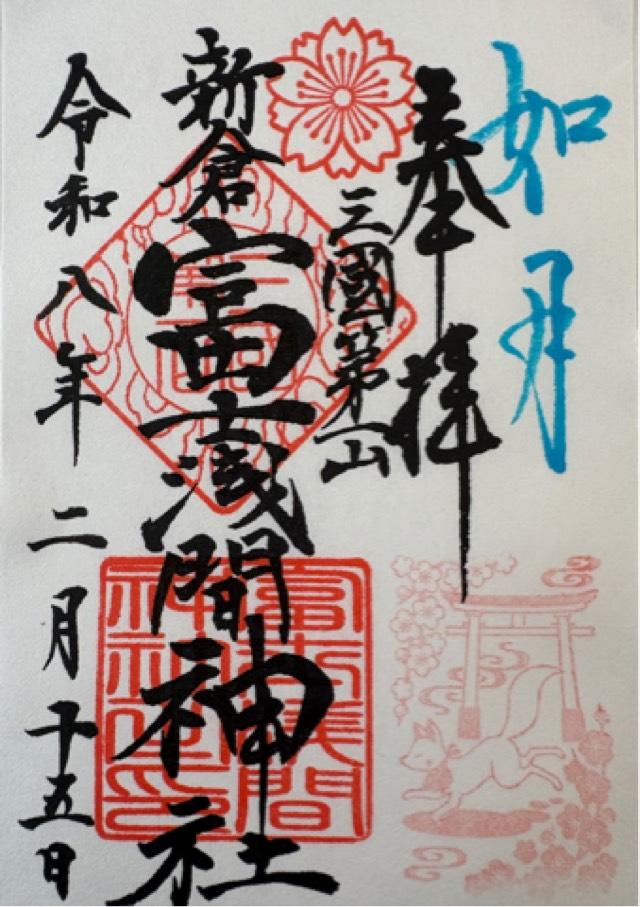 如月
奉拝
三國第一山
新倉富士浅間神社
令和八年二月十五日